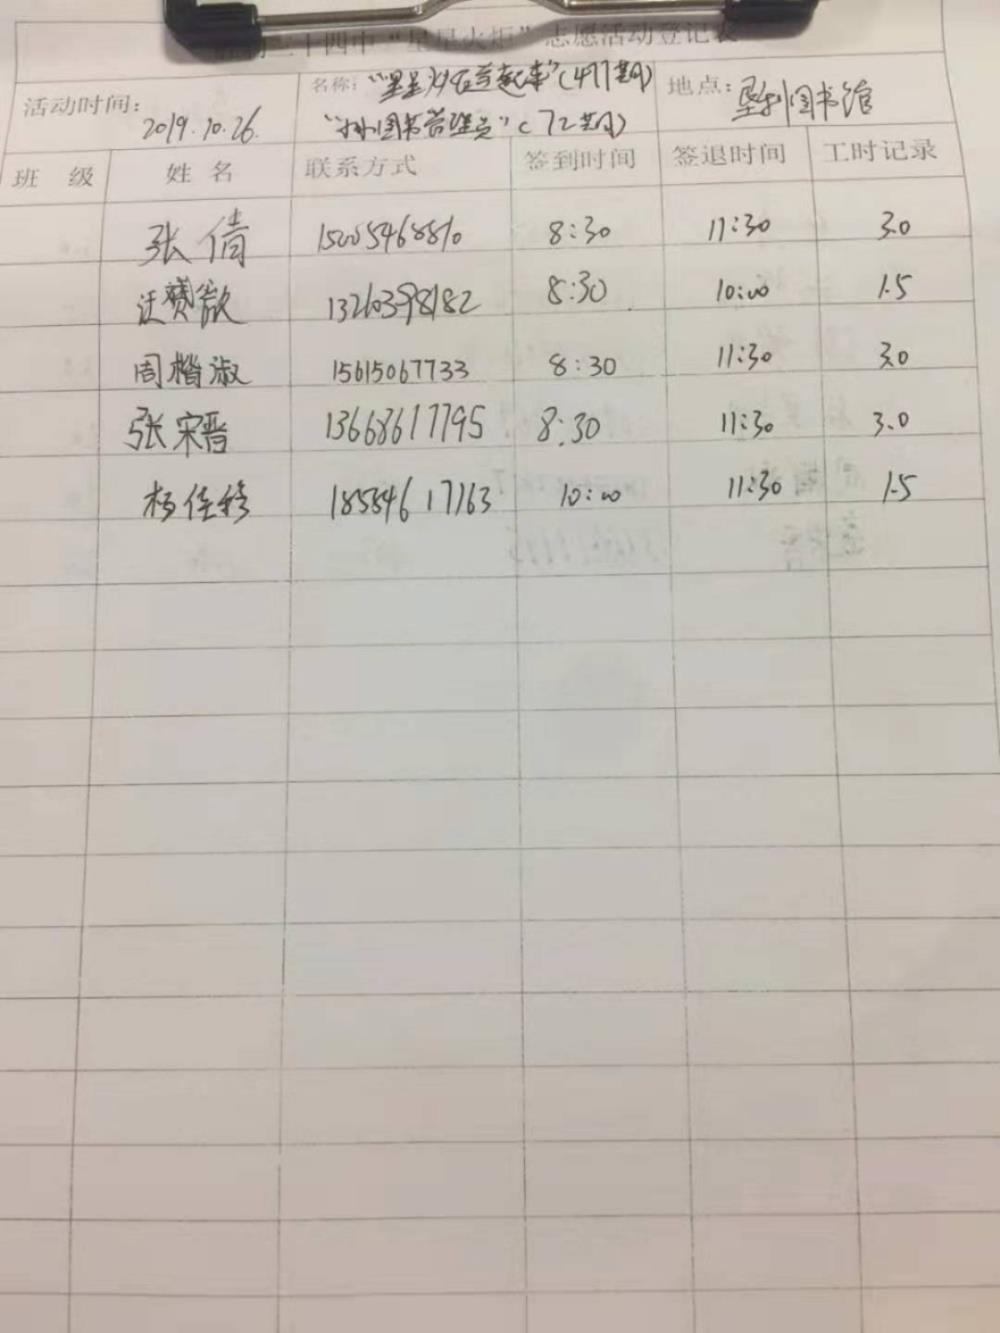 二十四中“星星火炬”志愿活动登记表
活动时间: 2019.10.26.
名称: (477期)
图书管理员”(72期)
地点: 垦利图书馆
班 级 姓 名 联系方式 签到时间 签退时间 工时记录
张倩 15005468810 8:30 11:30 3.0
13210398182 8:30 10:00 1.5
周楷淑 15615067733 8:30 11:30 3.0
张宋晋 13668617795 8:30 11:30 3.0
杨佳 18554617163 10:00 11:30 1.5